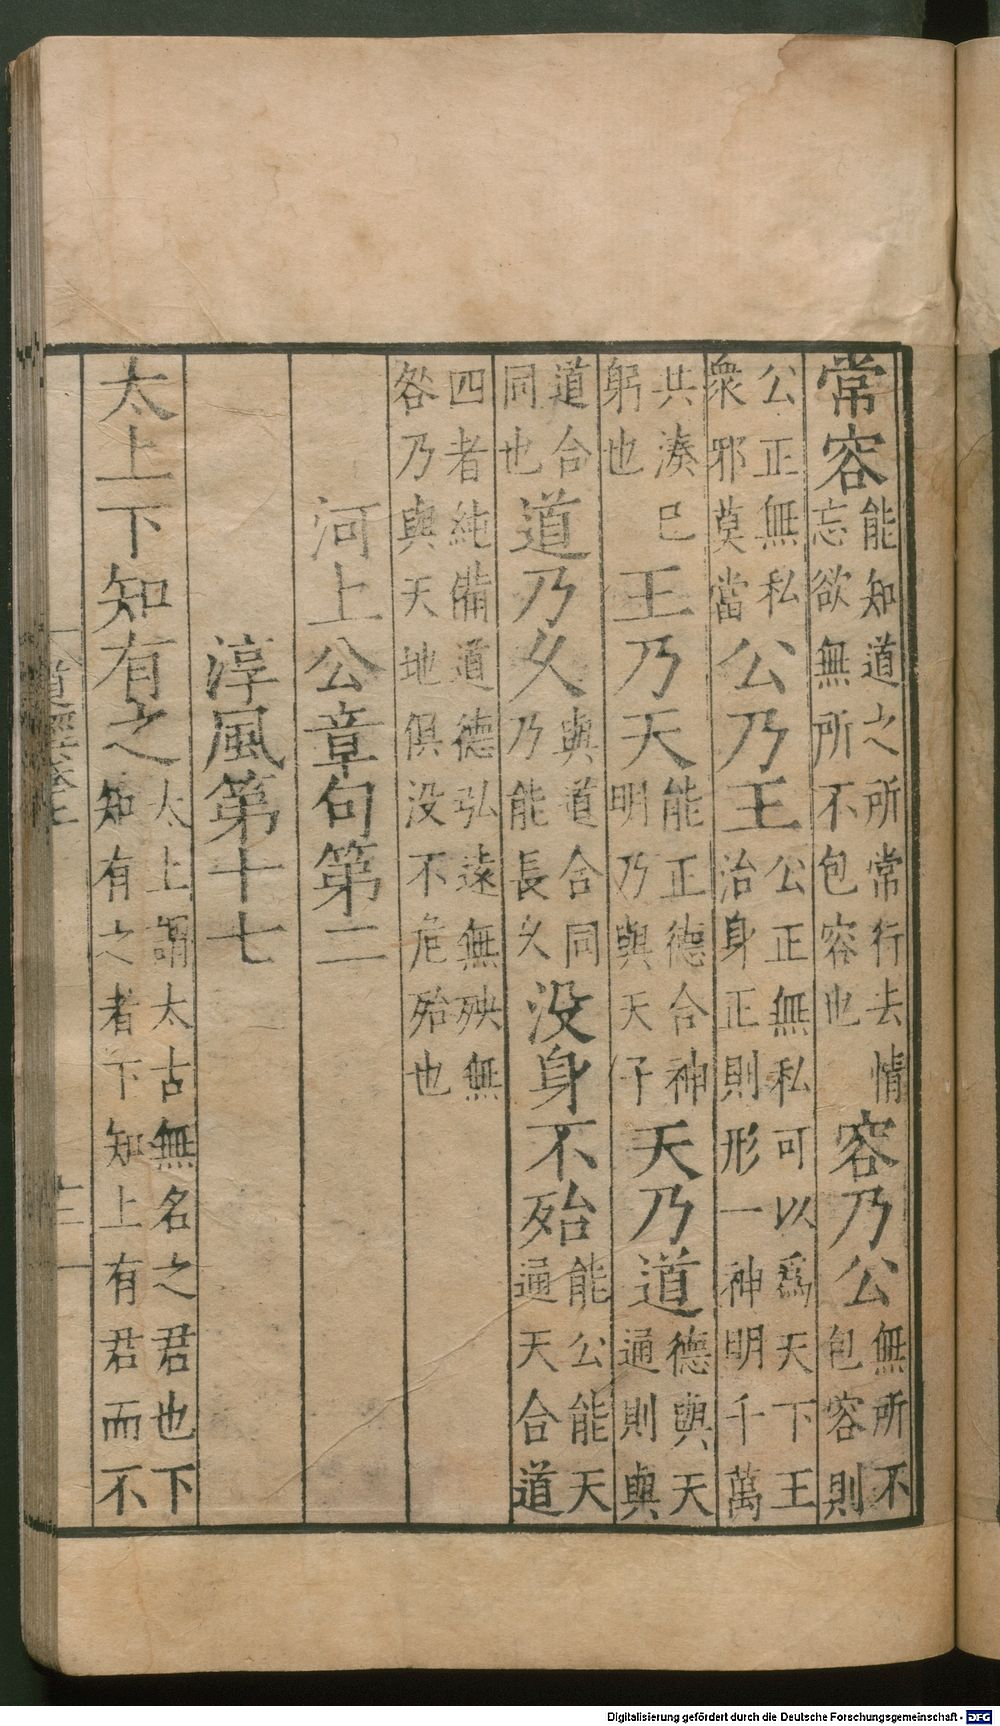 常容能知道之所常行去情忘欲無所不包容也容乃公無所不包容則
公正無私衆邪莫當公乃王公正無私可以爲天下王治身正則形一神明千萬
共湊已躬也王乃天能正德合神明乃與天天乃道德與天通則與
道合同也道乃久與道合同乃能長久没身不殆能公能天通天合道
四者純備道德弘遠無殃無咎乃與天地俱没不危殆也
河上公章句第二
淳風第十七
太上下知有之太上謂太古無名之君也下知有之者下知上有君而不
道經卷上
十二
Digitalisierung gefördert durch die Deutsche Forschungsgemeinschaft - DFG